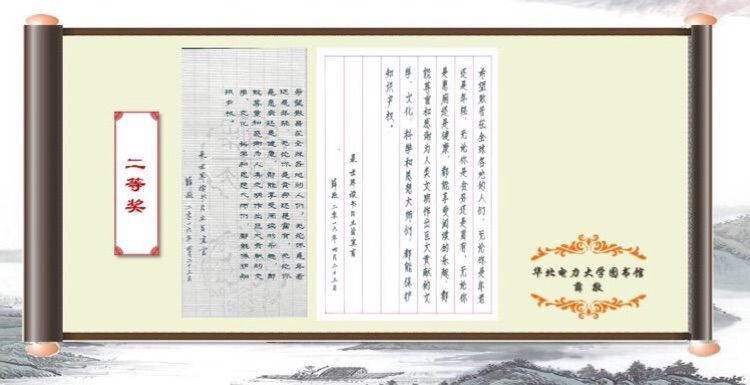 二等奖
希望散居在全球各地的人们，无论你是年老
还是年轻，无论你是贫穷还是富有，无论你
是患病还是健康，都能享受阅读的乐趣，都
能尊重和感谢为人类文明作出巨大贡献的文
学、文化、科学和思想大师们，都能保护知
识产权。
录世界读书日主旨宣言
薛敬 二零一六年四月二十三日
希望散居在全球各地的人们，无论你是年老
还是年轻，无论你是贫穷还是富有，无论你
是患病还是健康，都能享受阅读的乐趣，都
能尊重和感谢为人类文明作出巨大贡献的文
学、文化、科学和思想大师们，都能保护
知识产权。
录世界读书日主旨宣言
薛敬 二零一六年四月二十三日
华北电力大学图书馆
薛 敬